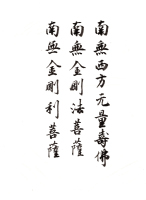 南無西方無量壽佛
南無金剛法菩薩
南無金剛利菩薩